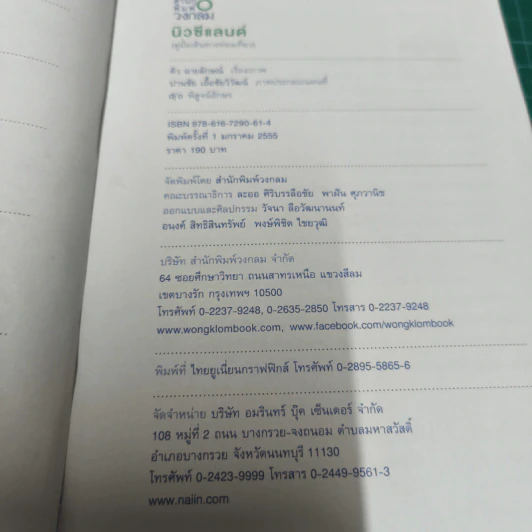 สำนัก
พิมพ์
วงกลม
นิวซีแลนด์
(คู่มือเดินทางท่องเที่ยว)
คิว ลายลักษณ์ เรื่องภาพ
ปานชัย เอื้อชัยวิวัฒน์ ภาพประกอบแผนที่
พิสูจน์อักษร
ISBN 978-616-7290-61-4
พิมพ์ครั้งที่ 1 มกราคม 2555
ราคา 190 บาท
จัดพิมพ์โดย สำนักพิมพ์วงกลม
คณะบรรณาธิการ ละออ ศิริบรรลือชัย พาฝัน ศุภวานิช
ออกแบบและศิลปกรรม วัจนา ลือวัฒนานนท์
อนงค์ สิทธิสินทรัพย์ พงษ์พิชิต ไชยวุฒิ
บริษัท สำนักพิมพ์วงกลม จำกัด
64 ซอยศึกษาวิทยา ถนนสาทรเหนือ แขวงสีลม
เขตบางรัก กรุงเทพฯ 10500
โทรศัพท์ 0-2237-9248, 0-2635-2850 โทรสาร 0-2237-9248
www.wongklombook.com, www.facebook.com/wongklombook
พิมพ์ที่ ไทยยูเนี่ยนกราฟฟิกส์ โทรศัพท์ 0-2895-5865-6
จัดจำหน่าย บริษัท อมรินทร์ บุ๊ค เซ็นเตอร์ จำกัด
108 หมู่ที่ 2 ถนน บางกรวย-จงถนอม ตำบลมหาสวัสดิ์
อำเภอบางกรวย จังหวัดนนทบุรี 11130
โทรศัพท์ 0-2423-9999 โทรสาร 0-2449-9561-3
www.naiin.com